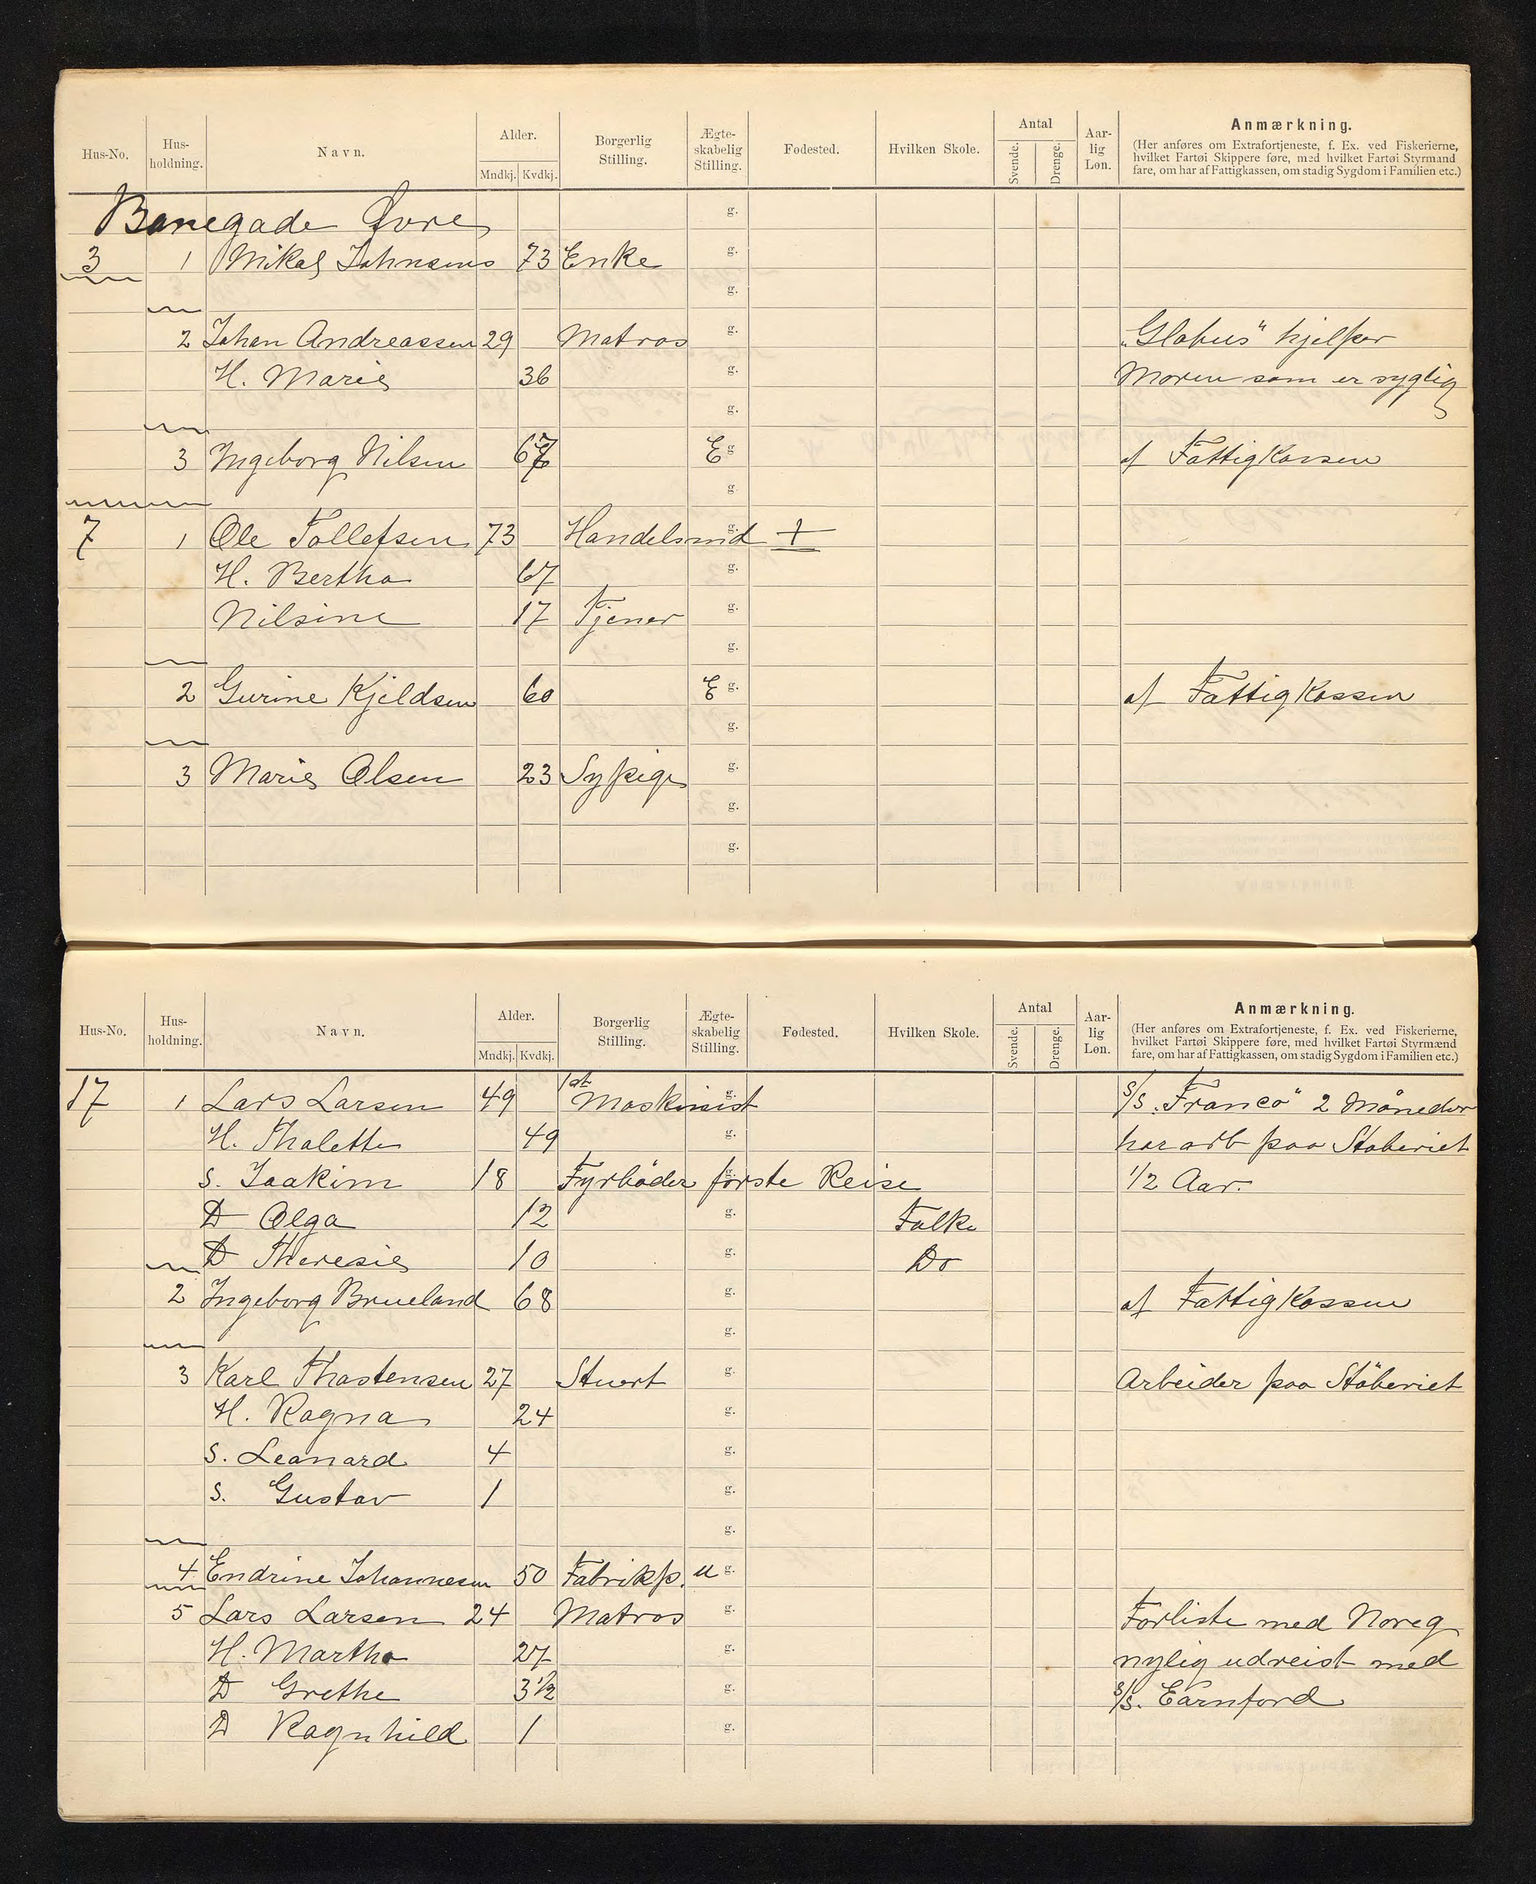 Hus-No. Hus-holdning. Navn. Alder. Mndkj. Kvdkj. Borgerlig Stilling. Ægte-skabelig Stilling. Fødested. Hvilken Skole. Antal Svende. Drenge. Aar-lig Løn. Anmærkning.
(Her anføres om Extrafortjeneste, f. Ex. ved Fiskerierne,
hvilket Fartøi Skippere føre, med hvilket Fartøi Styrmænd
fare, om har af Fattigkassen, om stadig Sygdom i Familien etc.)
Banegade Øvre g.
3 1 Mikal Johnsens 73 Enke g.
g.
2 Johan Andreassen 29 Matros g. "Globus" hjelper
H. Marie 36 g. Moren som er syglig
g.
3 Ingeborg Nilsen E g af Fattigkassen
g
7 1 Ole Tollefsen 73 Handelsmd g. +
H. Bertha 67 g.
Nilsine 17 Tjener g.
g.
2 Gurine Kjeldsen 60 E g. af Fattigkassen
g.
3 Marie Olsen 23 Sypige g.
g.
g.
Hus-No. Hus-holdning. Navn. Alder. Mndkj. Kvdkj. Borgerlig Stilling. Ægte-skabelig Stilling. Fødested. Hvilken Skole. Antal Svende. Drenge. Aar-lig Løn. Anmærkning.
(Her anføres om Extrafortjeneste, f. Ex. ved Fiskerierne,
hvilket Fartøi Skippere føre, med hvilket Fartøi Styrmænd
fare, om har af Fattigkassen, om stadig Sygdom i Familien etc.)
17 1 Lars Larsen 49 1st Maskinist g. S/S. "Franco" 2 Måneder
H. Thalette 49 g. har arb paa Støberiet
S. Joakim 18 Fyrbøder første Reise g. 1/2 Aar.
D Olga 12 g. Folke
D Theresie 10 g. Do
2 Ingeborg Brueland 68 g. af Fattigkassen
g.
3 Karl Thostensen 27 Stuert g. Arbeider paa Støberiet
H. Ragna 24 g.
S. Leonard 4 g.
S. Gustav 1 g.
g.
4 Endrine Johannesen 50 Fabrikp. u g.
5 Lars Larsen 24 Matros g. Forliste med Noreg
H. Martha 27 g. nylig udreist med
D Grethe 3 1/2 g. S/S. Earnford
D Ragnhild 1 g.